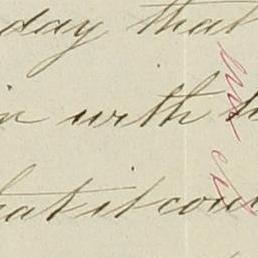 day that
in with
that it cou